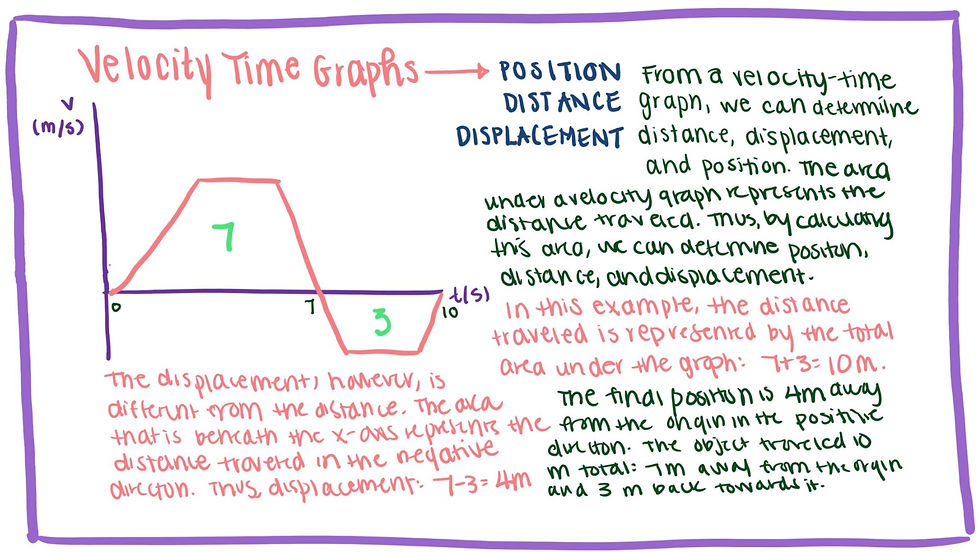 Velocity Time Graphs → POSITION
DISTANCE
DISPLACEMENT
v
(m/s)
7
3
0
7
10
t(s)
From a velocity-time
graph, we can determine
distance, displacement,
and position. The area
under a velocity graph represents the
distance traveled. Thus, by calculating
this area, we can determine position,
distance, and displacement.
In this example, the distance
traveled is represented by the total
area under the graph: 7+3=10m.
The displacement, however, is
different from the distance. The area
that is beneath the x-axis represents the
distance traveled in the negative
direction. Thus, displacement: 7-3=4m
The final position is 4m away
from the origin in the positive
direction. The object traveled 10
m total: 7m away from the origin
and 3 m back towards it.